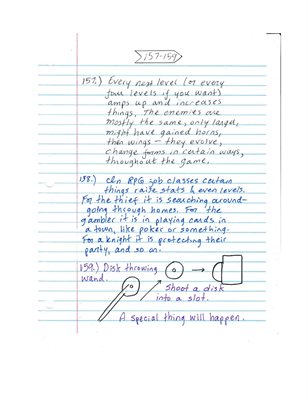 157-159
157.) Every next level (or every
four levels if you want)
amps up and increases
things. The enemies are
mostly the same, only larger,
might have gained horns,
then wings - they evolve,
change forms in certain ways,
throughout the game.
158.) In RPG job classes certain
things raise stats & even levels.
For the thief it is searching around-
going through homes. For the
gambler it is in playing cards in
a town, like poker or something.
For a knight it is protecting their
party, and so on.
159.) Disk throwing
wand.
Shoot a disk
into a slot.
A special thing will happen.